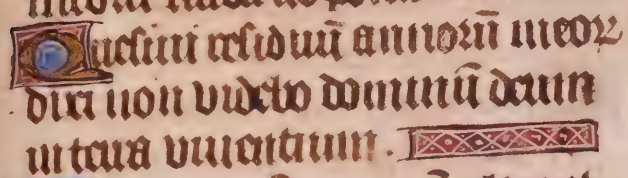 Quesiui residuū annorū meoꝝ
dixi non videbo dominū deum
in terra viuentium.